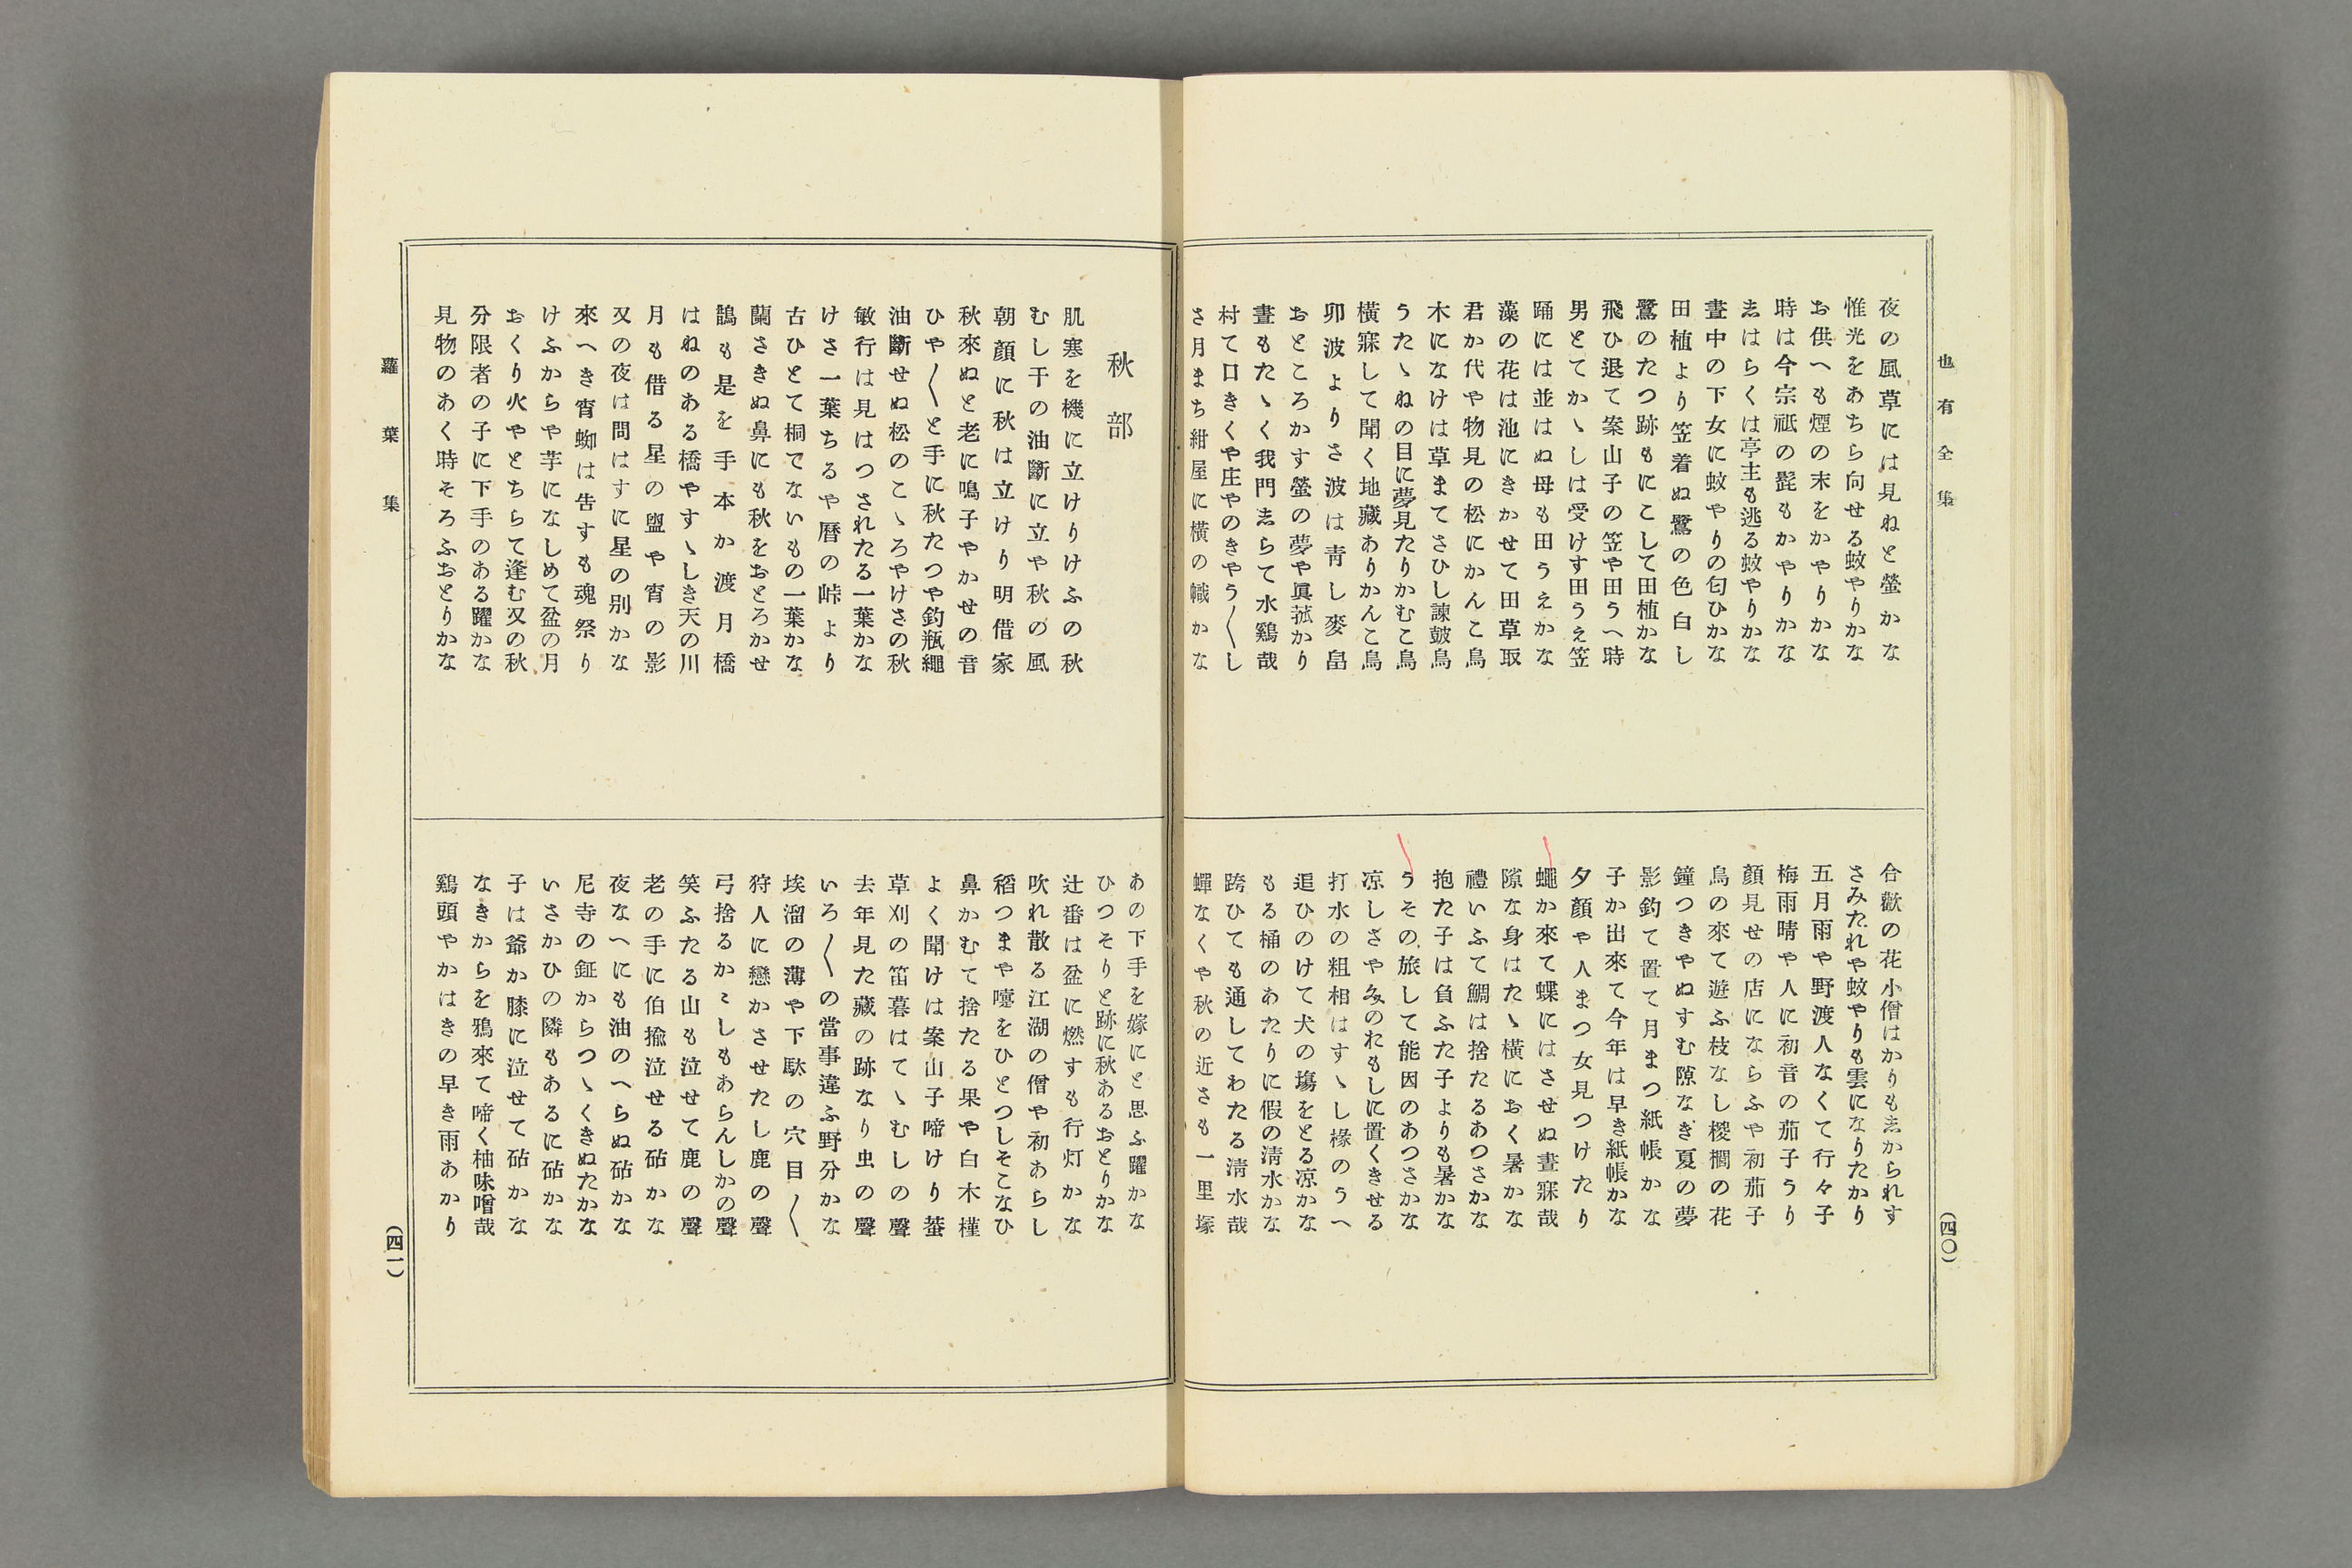 也有全集
夜の風草には見ねと螢かな
惟光をあちら向せる蚊やりかな
お供へも煙の末をかやりかな
時は今宗祇の髭もかやりかな
志はらくは亭主も逃る蚊やりかな
晝中の下女に蚊やりの匂ひかな
田植より笠着ぬ鷺の色白し
鷺のたつ跡もにこして田植かな
飛ひ退て案山子の笠や田うへ時
男とてかゝしは受けす田うえ笠
踊には並はぬ母も田うえかな
藻の花は池にきかせて田草取
君か代や物見の松にかんこ鳥
木になけは草まてさひし諫皷鳥
うたゝねの目に夢見たりかむこ鳥
橫寐して聞く地藏ありかんこ鳥
卯波よりさ波は靑し麥畠
おところかす螢の夢や眞菰かり
晝もたゝく我門志らて水鷄哉
村て口きくや庄やのきやう〳〵し
さ月まち紺屋に橫の幟かな
合歡の花小僧はかりも志かられす
さみたれや蚊やりも雲になりたかり
五月雨や野渡人なくて行々子
梅雨晴や人に初音の茄子うり
顏見せの店にならふや初茄子
鳥の來て遊ふ枝なし椶櫚の花
鐘つきやぬすむ隙なき夏の夢
影釣て置て月まつ紙帳かな
子か出來て今年は早き紙帳かな
夕顏や人まつ女見つけたり
蠅か來て蝶にはさせぬ晝寐哉
隙な身はたゝ橫におく暑かな
禮いふて鯛は捨たるあつさかな
抱た子は負ふた子よりも暑かな
うその旅して能因のあつさかな
凉しさやみのれもしに置くきせる
打水の粗相はすゝし椽のうへ
追ひのけて犬の塲をとる凉かな
もる桶のあたりに假の淸水かな
跨ひても通してわたる淸水哉
蟬なくや秋の近さも一里塚
(四〇)
秋部
肌寒を機に立けりけふの秋
むし干の油斷に立や秋の風
朝顏に秋は立けり明借家
秋來ぬと老に鳴子やかせの音
ひや〳〵と手に秋たつや釣瓶繩
油斷せぬ松のこゝろやけさの秋
敏行は見はつされたる一葉かな
けさ一葉ちるや曆の峠より
古ひとて桐でないもの一葉かな
蘭さきぬ鼻にも秋をおとろかせ
鵲も是を手本か渡月橋
はねのある橋やすゝしき天の川
月も借る星の盥や宵の影
又の夜は問はすに星の別かな
來へき宵蜘は吿すも魂祭り
けふからや芋になしめて盆の月
おくり火やとちらて逢む又の秋
分限者の子に下手のある躍かな
見物のあく時そろふおとりかな
あの下手を嫁にと思ふ躍かな
ひつそりと跡に秋あるおとりかな
辻番は盆に燃すも行灯かな
吹れ散る江湖の僧や初あらし
稻つまや嚏をひとつしそこなひ
鼻かむて捨たる果や白木槿
よく聞けは案山子啼けり蛬
草刈の笛暮はてゝむしの聲
去年見た藏の跡なり虫の聲
いろ〳〵の當事違ふ野分かな
埃溜の薄や下駄の穴目〳〵
狩人に戀かさせたし鹿の聲
弓捨るかゝしもあらんしかの聲
笑ふたる山も泣せて鹿の聲
老の手に伯揄泣せる砧かな
夜なへにも油のへらぬ砧かな
尼寺の鉦からつゝくきぬたかな
いさかひの隣もあるに砧かな
子は爺か膝に泣せて砧かな
なきからを鴉來て啼く柚味噌哉
鷄頭やかはきの早き雨あかり
蘿葉集
(四一)